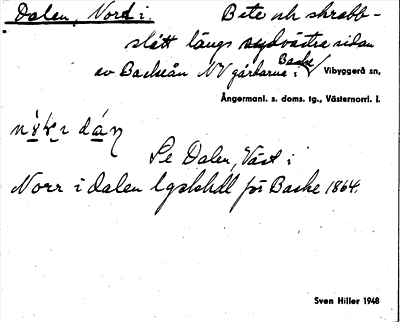 Dalen, Nord i. Bete och skrabb-
slått längs sydvästra sidan
av Backeån NV gårdarna i Backe Vibyggerå sn,
Ångermanl. s. doms. tg., Västernorrl. l.
Se Dalen, Väst i
Norr i dalen lgskhdl för Backe 1864.
Sven Hiller 1948